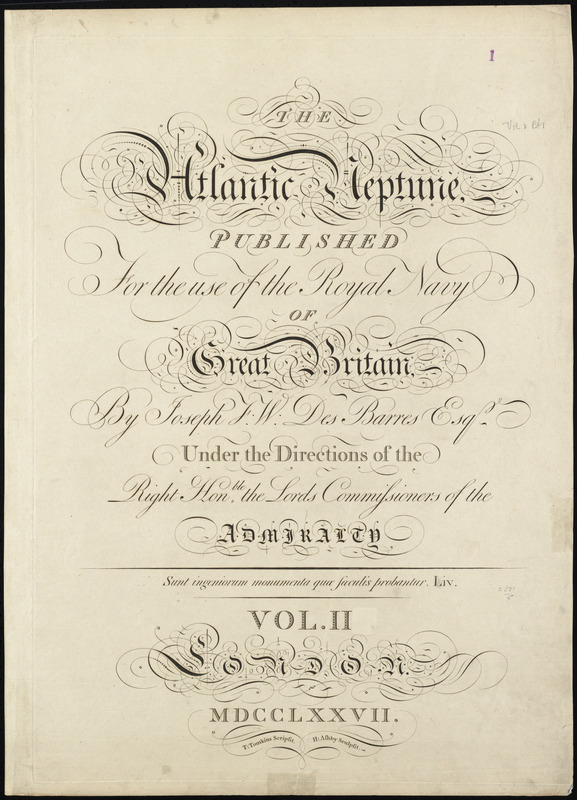 1
THE
Atlantic Neptune,
PUBLISHED
For the use of the Royal Navy
OF
Great Britain.
By Joseph F. W. Des Barres Esqr.
Under the Directions of the
Right Honble. the Lords Commiſsioners of the
ADMIRALTY
Sunt ingeniorum monumenta quæ ſæculis probantur. Liv.
VOL. II
LONDON.
MDCCLXXVII.
T: Tomkins Scripſit. H: Aſhby Sculpſit.